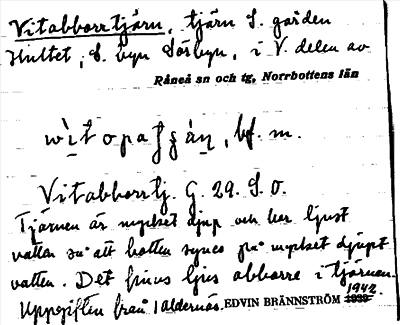 Vitabborrtjärn, tjärn S. gården
Hultet, S. byn Sörbyn, i V. delen av
Råneå sn och tg, Norrbottens län
bf. m.
Vitabborrtj. G. 29. S.O.
Tjärnen är mycket djup och har ljust
vatten så att botten synes på mycket djupt
vatten. Det finns ljus abborre i tjärnen.
Uppgiften från 1 åldernås. EDVIN BRÄNNSTRÖM 1939 1942.